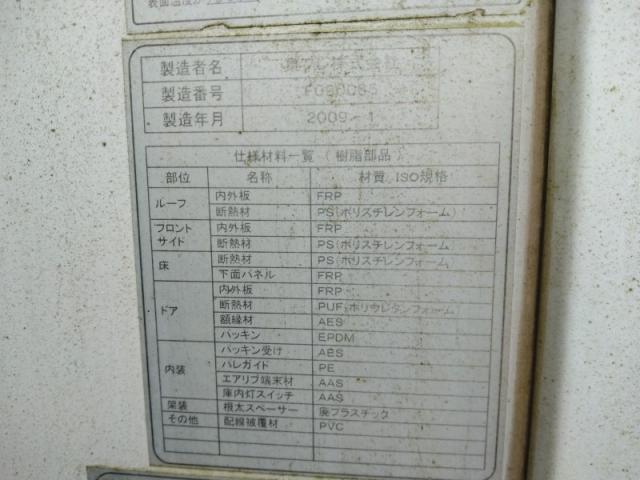 製造者名 プレ株式会社
製造番号
製造年月 2009 - 1
仕様材料一覧 (樹脂部品)
部位 名称 材質 ISO規格
ルーフ 内外板 FRP
断熱材 PS(ポリスチレンフォーム)
フロント サイド 内外板 FRP
断熱材 PS(ポリスチレンフォーム)
床 断熱材 PS(ポリスチレンフォーム)
下面パネル FRP
ドア 内外板 FRP
断熱材 PUF(ポリウレタンフォーム)
額縁材 AES
パッキン EPDM
内装 パッキン受け ABS
バレガイド PE
エアリブ端末材 AAS
庫内灯スイッチ AAS
架装 根太スペーサー 廃プラスチック
その他 配線被覆材 PVC